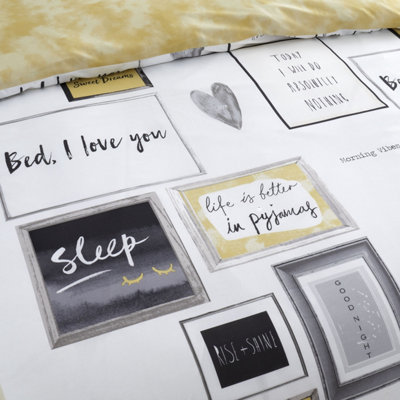 Sweet Dreams
TODAY
I WILL DO
ABSOLUTELY
NOTHING
Bed, I love you
Morning Vibes
life is better
in pyjamas
sleep
GOODNIGHT
RISE + SHINE